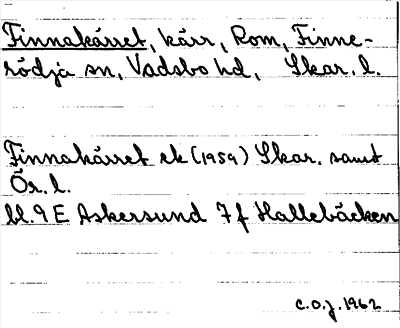 Finnakärret, kärr, Rom, Finne-
rödja sn, Vadsbo hd, Skar. l.
Finnakärret ek (1959) Skar. samt
Ör. l.
bl. 9 E Askersund 7 f Hallebäcken
C.O.J. 1962